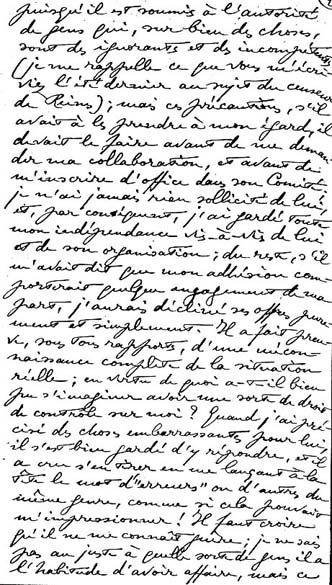 puisqu'il est soumis à l'autorité
de gens qui, sur bien des choses,
sont des ignorants et des incompétents
(je me rappelle ce que vous m'écri-
viez l'été dernier au sujet du censeur
de Reims) ; mais ces précautions, s'il
avait à les prendre à mon égard, il
devait le faire avant de me deman-
der ma collaboration, et avant de
m'inscrire d'office dans son Comité.
je n'ai jamais rien sollicité de lui
et, par conséquent, j'ai gardé toute
mon indépendance vis-à-vis de lui
et de son organisation ; du reste, s'il
m'avait dit que mon adhésion com-
portait quelque engagement de ma
part, j'aurais décliné ses offres pure-
ment et simplement. Il a fait preu-
ve, sous tous rapports, d'une mécon-
naissance complète de la situation
réelle ; en vertu de quoi a-t-il bien
pu s'imaginer avoir une sorte de droit
de contrôle sur moi ? Quand j'ai pré-
cisé des choses embarrassantes pour lui,
il s'est bien gardé d'y répondre, et il
a cru s'en tirer en me lançant à la
tête le mot d'"erreurs" ou d'autres du
même genre, comme si cela pouvait
m'impressionner ! Il faut croire
qu'il ne me connaît guère ; je ne sais
pas au juste à quelle sorte de gens il a
l'habitude d'avoir affaire, mais ce